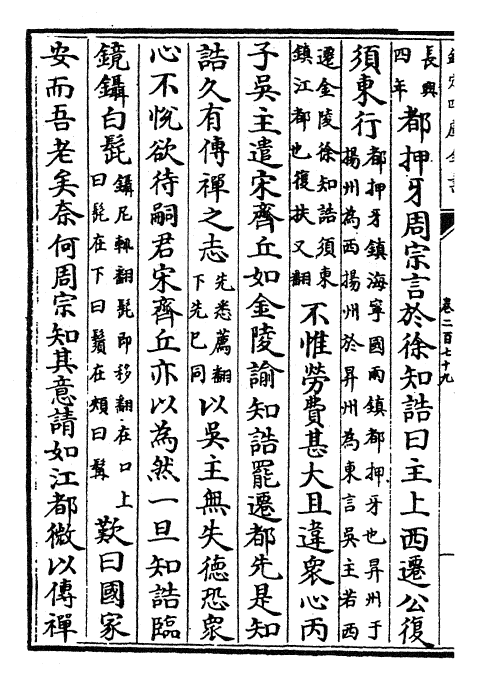 欽定四庫全書
卷二百七十九
長興
四年
都押牙周宗言於徐知誥曰主上西遷公復
須東行
都押牙鎮海寧國兩鎮都押牙也昇州于
揚州為西揚州於昇州為東言吳主若西
遷金陵徐知誥須東
鎮江都也復扶又翻
不惟勞費甚大且違衆心丙
子吳主遣宋齊丘如金陵諭知誥罷遷都先是知
誥久有傳禪之志
先悉薦翻
下先已同
以吳主無失德恐衆
心不悅欲待嗣君宋齊丘亦以為然一旦知誥臨
鏡鑷白髭
鑷尼輒翻髭即移翻在口上
曰髭在下曰鬚在頰曰髯
歎曰國家
安而吾老矣奈何周宗知其意請如江都微以傳禪